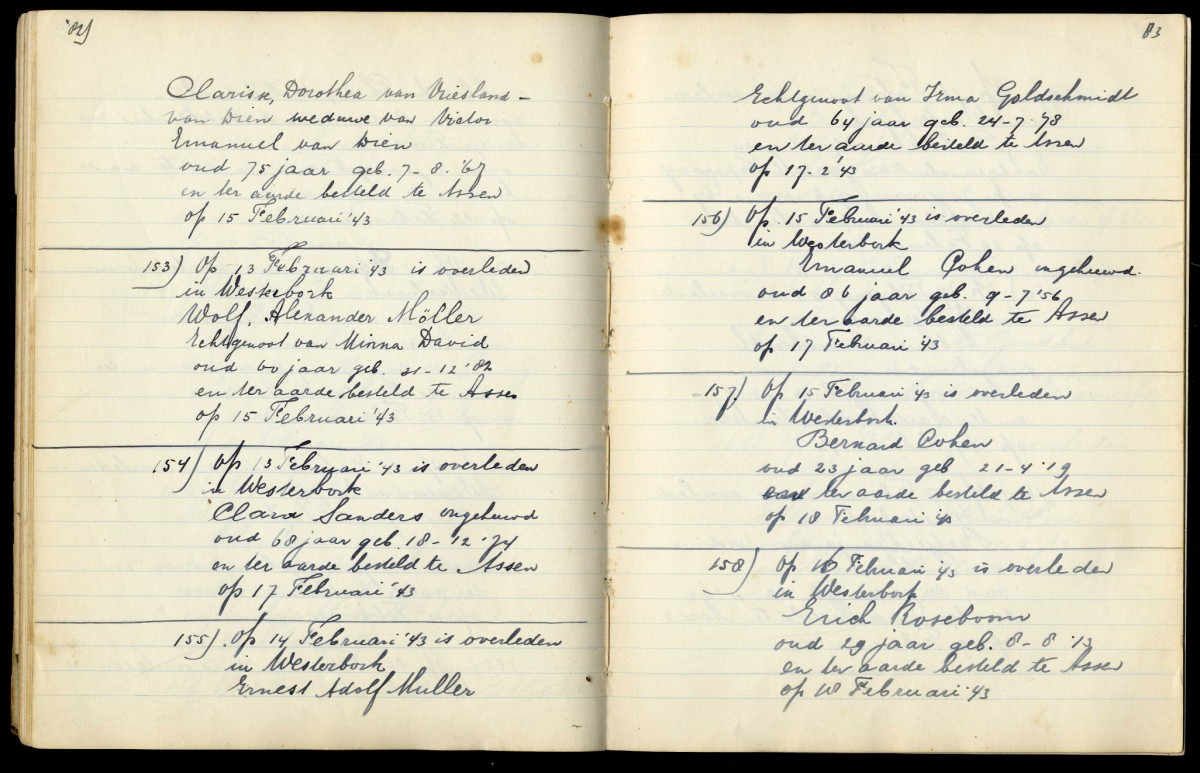 82)
Clarisse, Dorothea van Vriesland -
van Dien weduwe van Victor
Emanuel van Dien
oud 75 jaar geb. 7-8.'67
en ter aarde besteld te Assen
op 15 Februari '43
153) Op 13 Februari '43 is overleden
in Westerbork
Wolf, Alexander Möller
Echtgenoot van Minna David
oud 60 jaar geb. 21-12'82
en ter aarde besteld te Assen
op 15 Februari '43
154) Op 13 Februari '43 is overleden
in Westerbork
Clara Sanders ongehuwd
oud 68 jaar geb. 18-12'74
en ter aarde besteld te Assen
op 17 Februari '43
155) Op 14 Februari '43 is overleden
in Westerbork
Ernest Adolf Muller
83
Echtgenoot van Irma Goldschmidt
oud 64 jaar geb. 24-7'78
en ter aarde besteld te Assen
op 17-2'43
156) Op 15 Februari '43 is overleden
in Westerbork
Emanuel Cohen ongehuwd.
oud 86 jaar geb. 9-7'56
en ter aarde besteld te Assen
op 17 Februari '43
157) Op 15 Februari '43 is overleden
in Westerbork.
Bernard Cohen
oud 23 jaar geb 21-4'19
ter aarde besteld te Assen
op 18 Februari '43
158) Op 16 Februari '43 is overleden
in Westerbork
Erich Roseboom
oud 29 jaar geb. 8-8'13
en ter aarde besteld te Assen
op 18 Februari '43